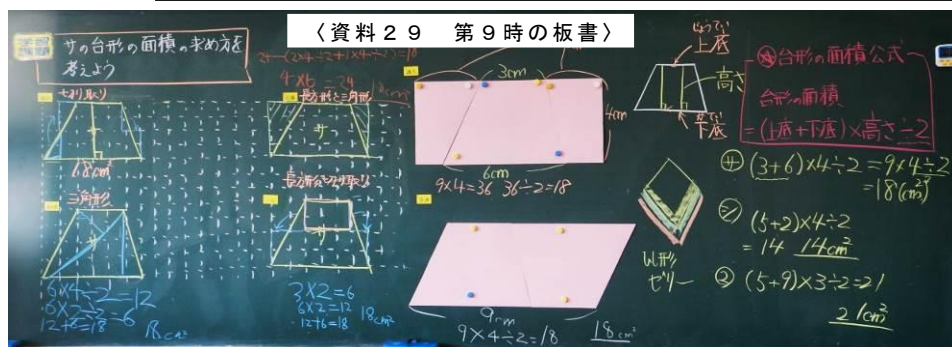 〈資料２９　第９時の板書〉
サの台形の面積の求め方を
考えよう
切り取り
18cm²
三角形
6×4÷2=12
6×2÷2=6
12+6=18
18cm²
長方形と三角形
長方形を切り取り
3×2=6
6×2=12
12+6=18
18cm²
3cm
4cm
6cm
9×4=36 36÷2=18
9cm
9×4÷2=18
18cm²
じょうてい
上底
高さ
下底
台形の面積公式
台形の面積
=(上底+下底)×高さ÷2
サ (3+6)×4÷2=9×4÷2
=18(cm²)
シ (5+2)×4÷2
=14 14cm²
② (5+9)×3÷2=21
21cm²
ゼリー